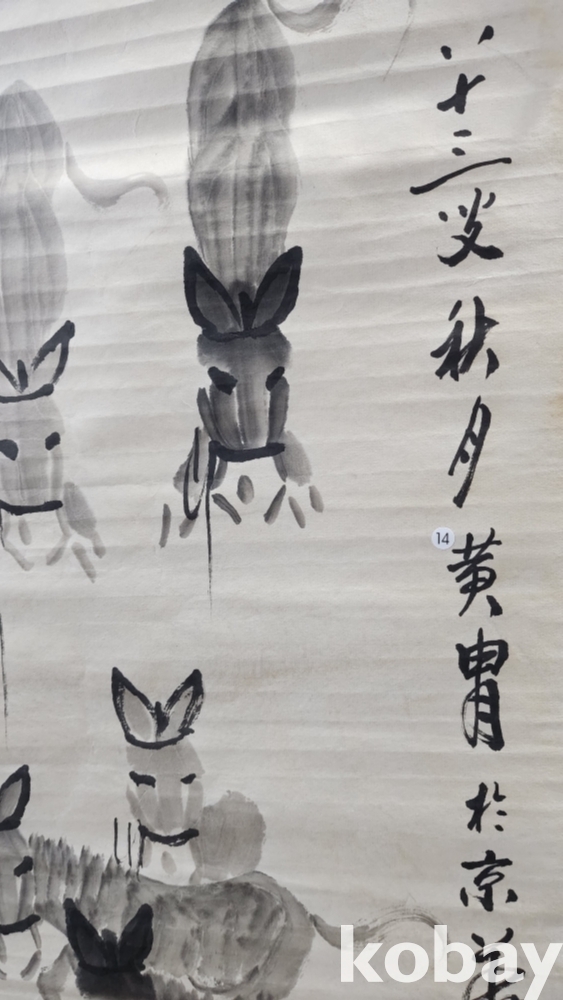 八十三叟秋月黄胄於京
14
kobay